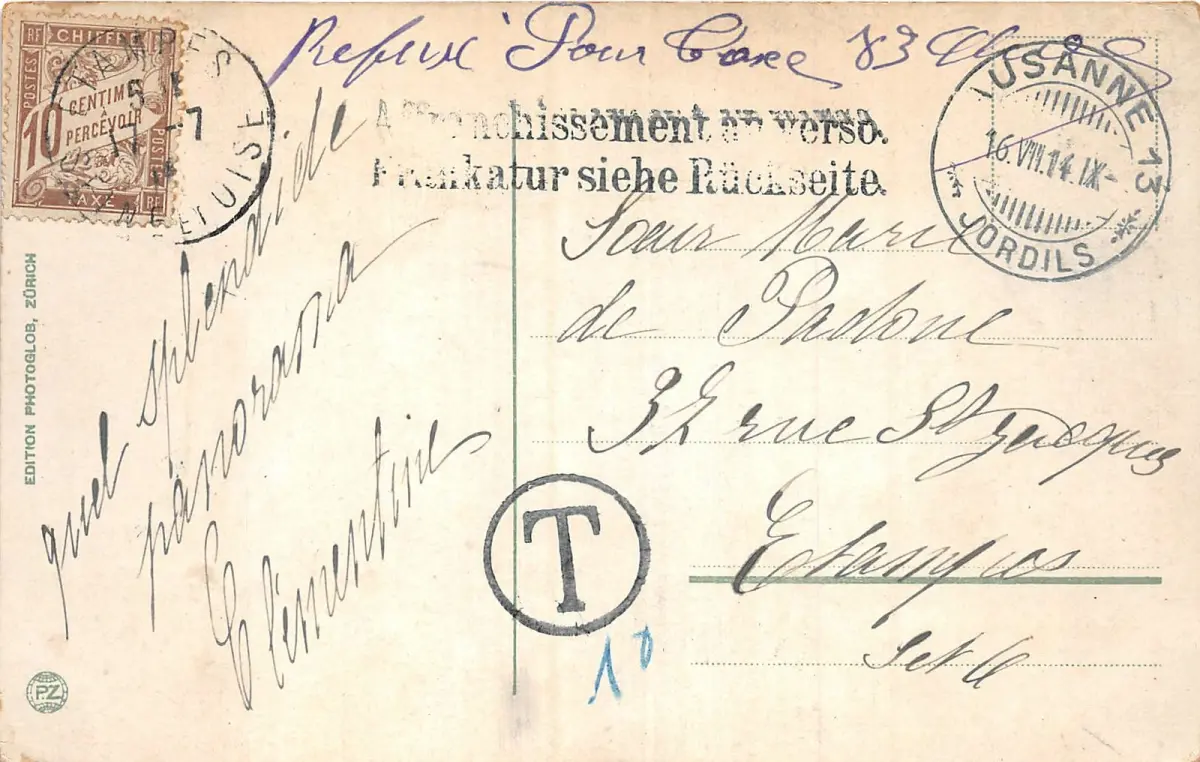 Refusé Pour Taxe 83
RF CHIFFRE RF
POSTES
10 CENTIMES
À
PERCEVOIR
POSTES
TAXE RF
ETAMPES
5
17 -7
SEINE ET OISE
Affranchissement au verso.
Frankatur siehe Rückseite.
LAUSANNE 13
16.VII.14.IX-
JORDILS
Sœur Marie
de Padoue
32 rue St Jacques
Etampes
Set O
quel splendide
panorama
Clémentine
T
10
EDITION PHOTOGLOB, ZÜRICH
PZ